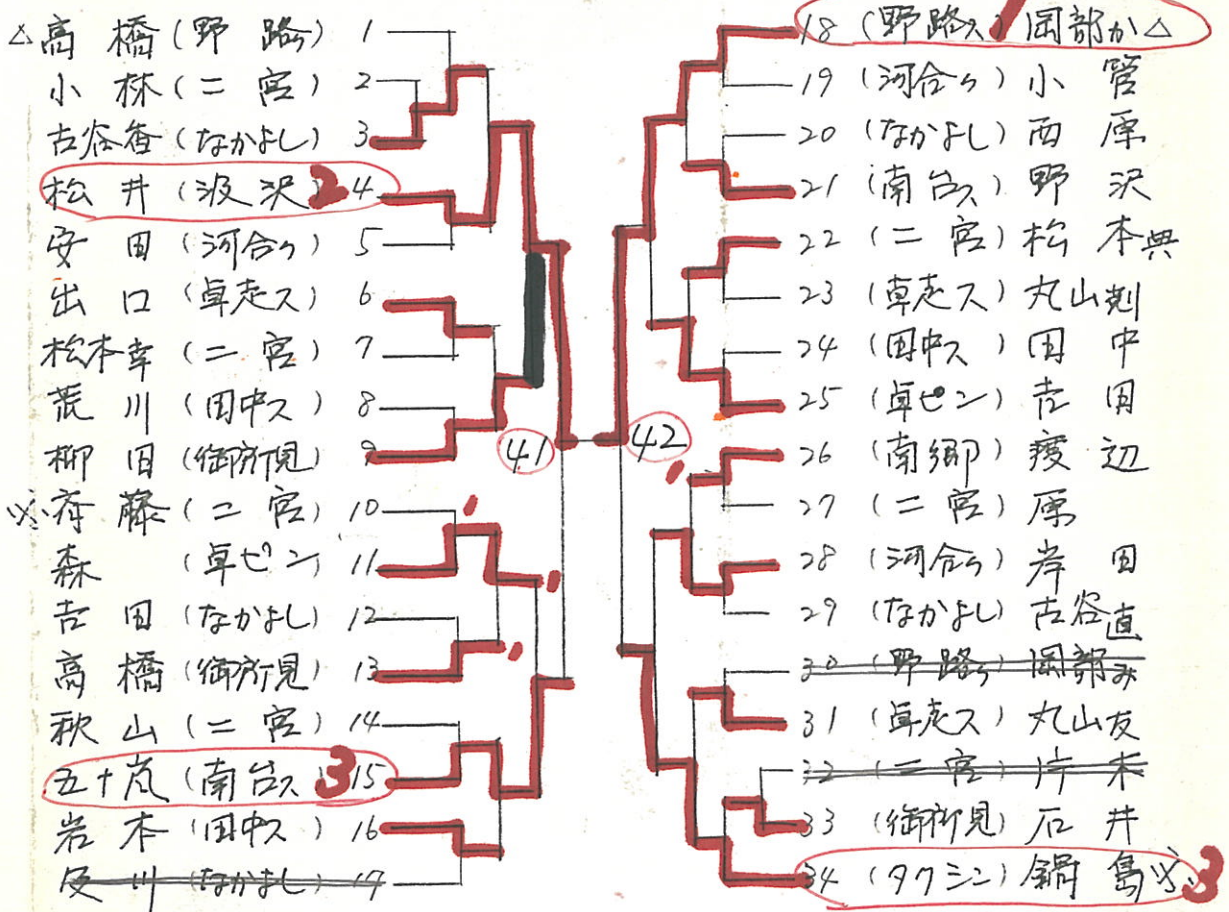 △高橋(野路ク) 1
小林(二宮) 2
古谷香(なかよし) 3
松井(汲沢) 2 4
安田(河合ク) 5
出口(卓志ス) 6
松本幸(二宮) 7
荒川(田中ス) 8
柳田(御所見) 9
斉藤(二宮) 10
森(卓ピン) 11
吉田(なかよし) 12
高橋(御所見) 13
秋山(二宮) 14
五十嵐(南台ス) 3 15
岩本(田中ス) 16
及川(なかよし) 17
41
42
18 (野路ス) 1 岡部か△
19 (河合ク) 小菅
20 (なかよし) 西原
21 (南台ス) 野沢
22 (二宮) 松本典
23 (卓志ス) 丸山剋
24 (田中ス) 田中
25 (卓ピン) 吉田
26 (南郷) 渡辺
27 (二宮) 原
28 (河合ク) 岸田
29 (なかよし) 古谷直
30 (野路ク) 岡部み
31 (卓志ス) 丸山友
32 (二宮) 片木
33 (御所見) 石井
34 (タクシン) 鍋島 3